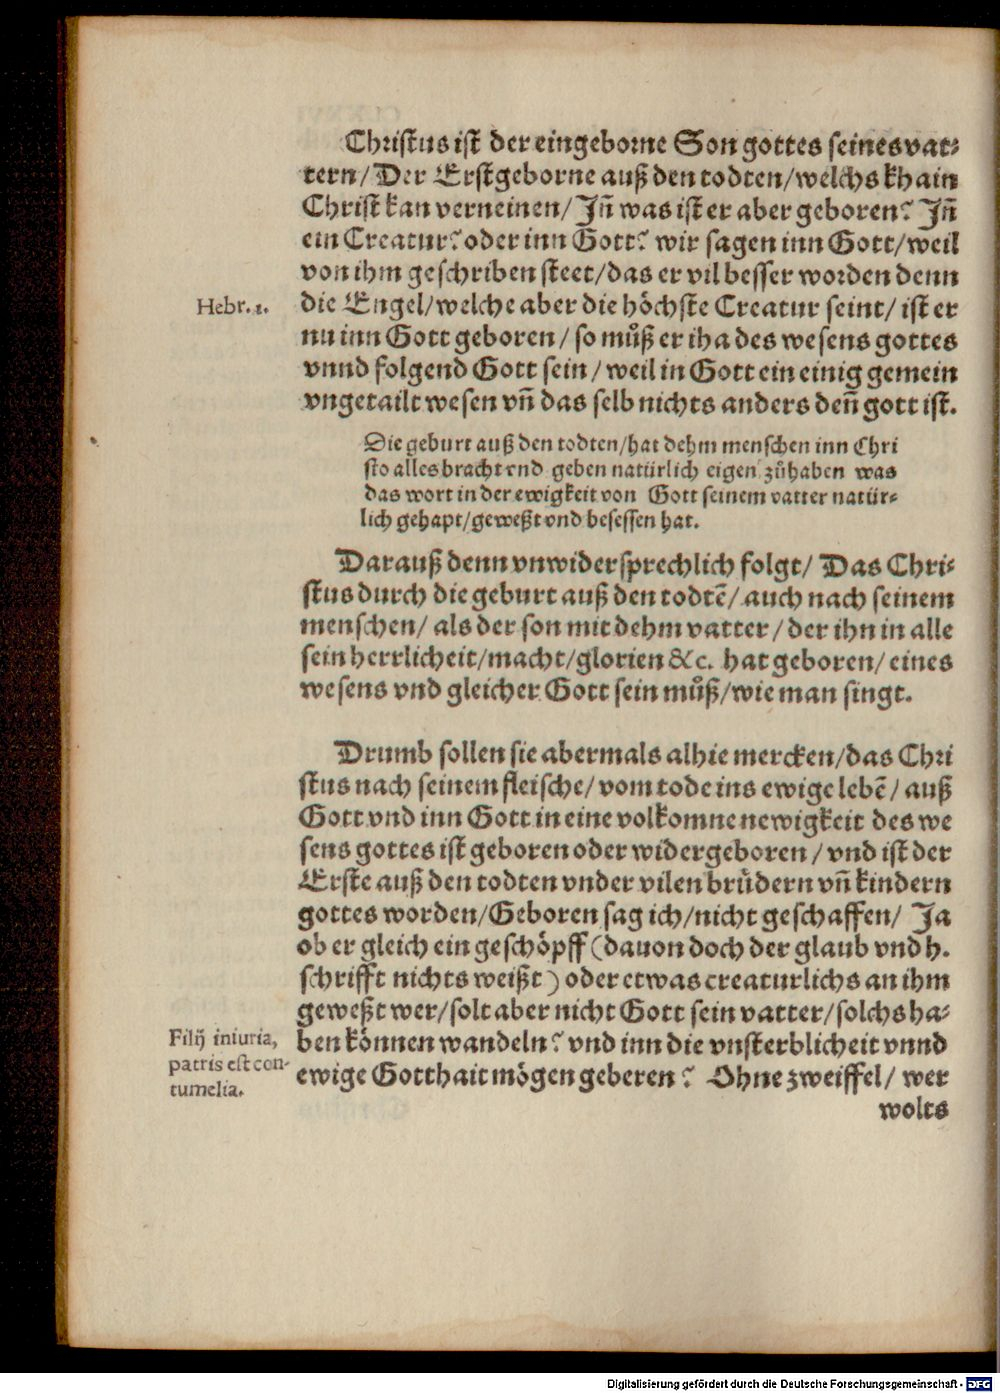 Christus ist der eingeborne Son gottes seines vat-
tern/ Der Erstgeborne auß den todten/ welchs khain
Christ kan verneinen/ Jñ was ist er aber geboren? Jñ
ein Creatur? oder inn Gott? wir sagen inn Gott/ weil
von ihm geschriben steet/ das er vil besser worden denn
Hebr. 1.
die Engel/ welche aber die höchste Creatur seint/ ist er
nu inn Gott geboren/ so můß er iha des wesens gottes
vnnd folgend Gott sein/ weil in Gott ein einig gemein
vngetailt wesen vñ das selb nichts anders deñ gott ist.
Die geburt auß den todten/ hat dehm menschen inn Chri
sto alles bracht vnd geben natürlich eigen zůhaben was
das wort in der ewigkeit von Gott seinem vatter natür-
lich gehapt/ geweßt vnd besessen hat.
Darauß denn vnwidersprechlich folgt/ Das Chri-
stus durch die geburt auß den todtē/ auch nach seinem
menschen/ als der son mit dehm vatter/ der ihn in alle
sein herrlicheit/ macht/ glorien &c. hat geboren/ eines
wesens vnd gleicher Gott sein můß/ wie man singt.
Drumb sollen sie abermals alhie mercken/ das Chri
stus nach seinem fleische/ vom tode ins ewige lebē/ auß
Gott vnd inn Gott in eine volkomne newigkeit des we
sens gottes ist geboren oder widergeboren/ vnd ist der
Erste auß den todten vnder vilen brüdern vñ kindern
gottes worden/ Geboren sag ich/ nicht geschaffen/ Ja
ob er gleich ein geschöpff (dauon doch der glaub vnd h.
schrifft nichts weißt) oder etwas creaturlichs an ihm
geweßt wer/ solt aber nicht Gott sein vatter/ solchs ha-
Filij iniuria,
patris est con-
tumelia.
ben können wandeln? vnd inn die vnsterblicheit vnnd
ewige Gotthait mögen geberen? Ohne zweiffel/ wer
wolts
Digitalisierung gefördert durch die Deutsche Forschungsgemeinschaft - DFG